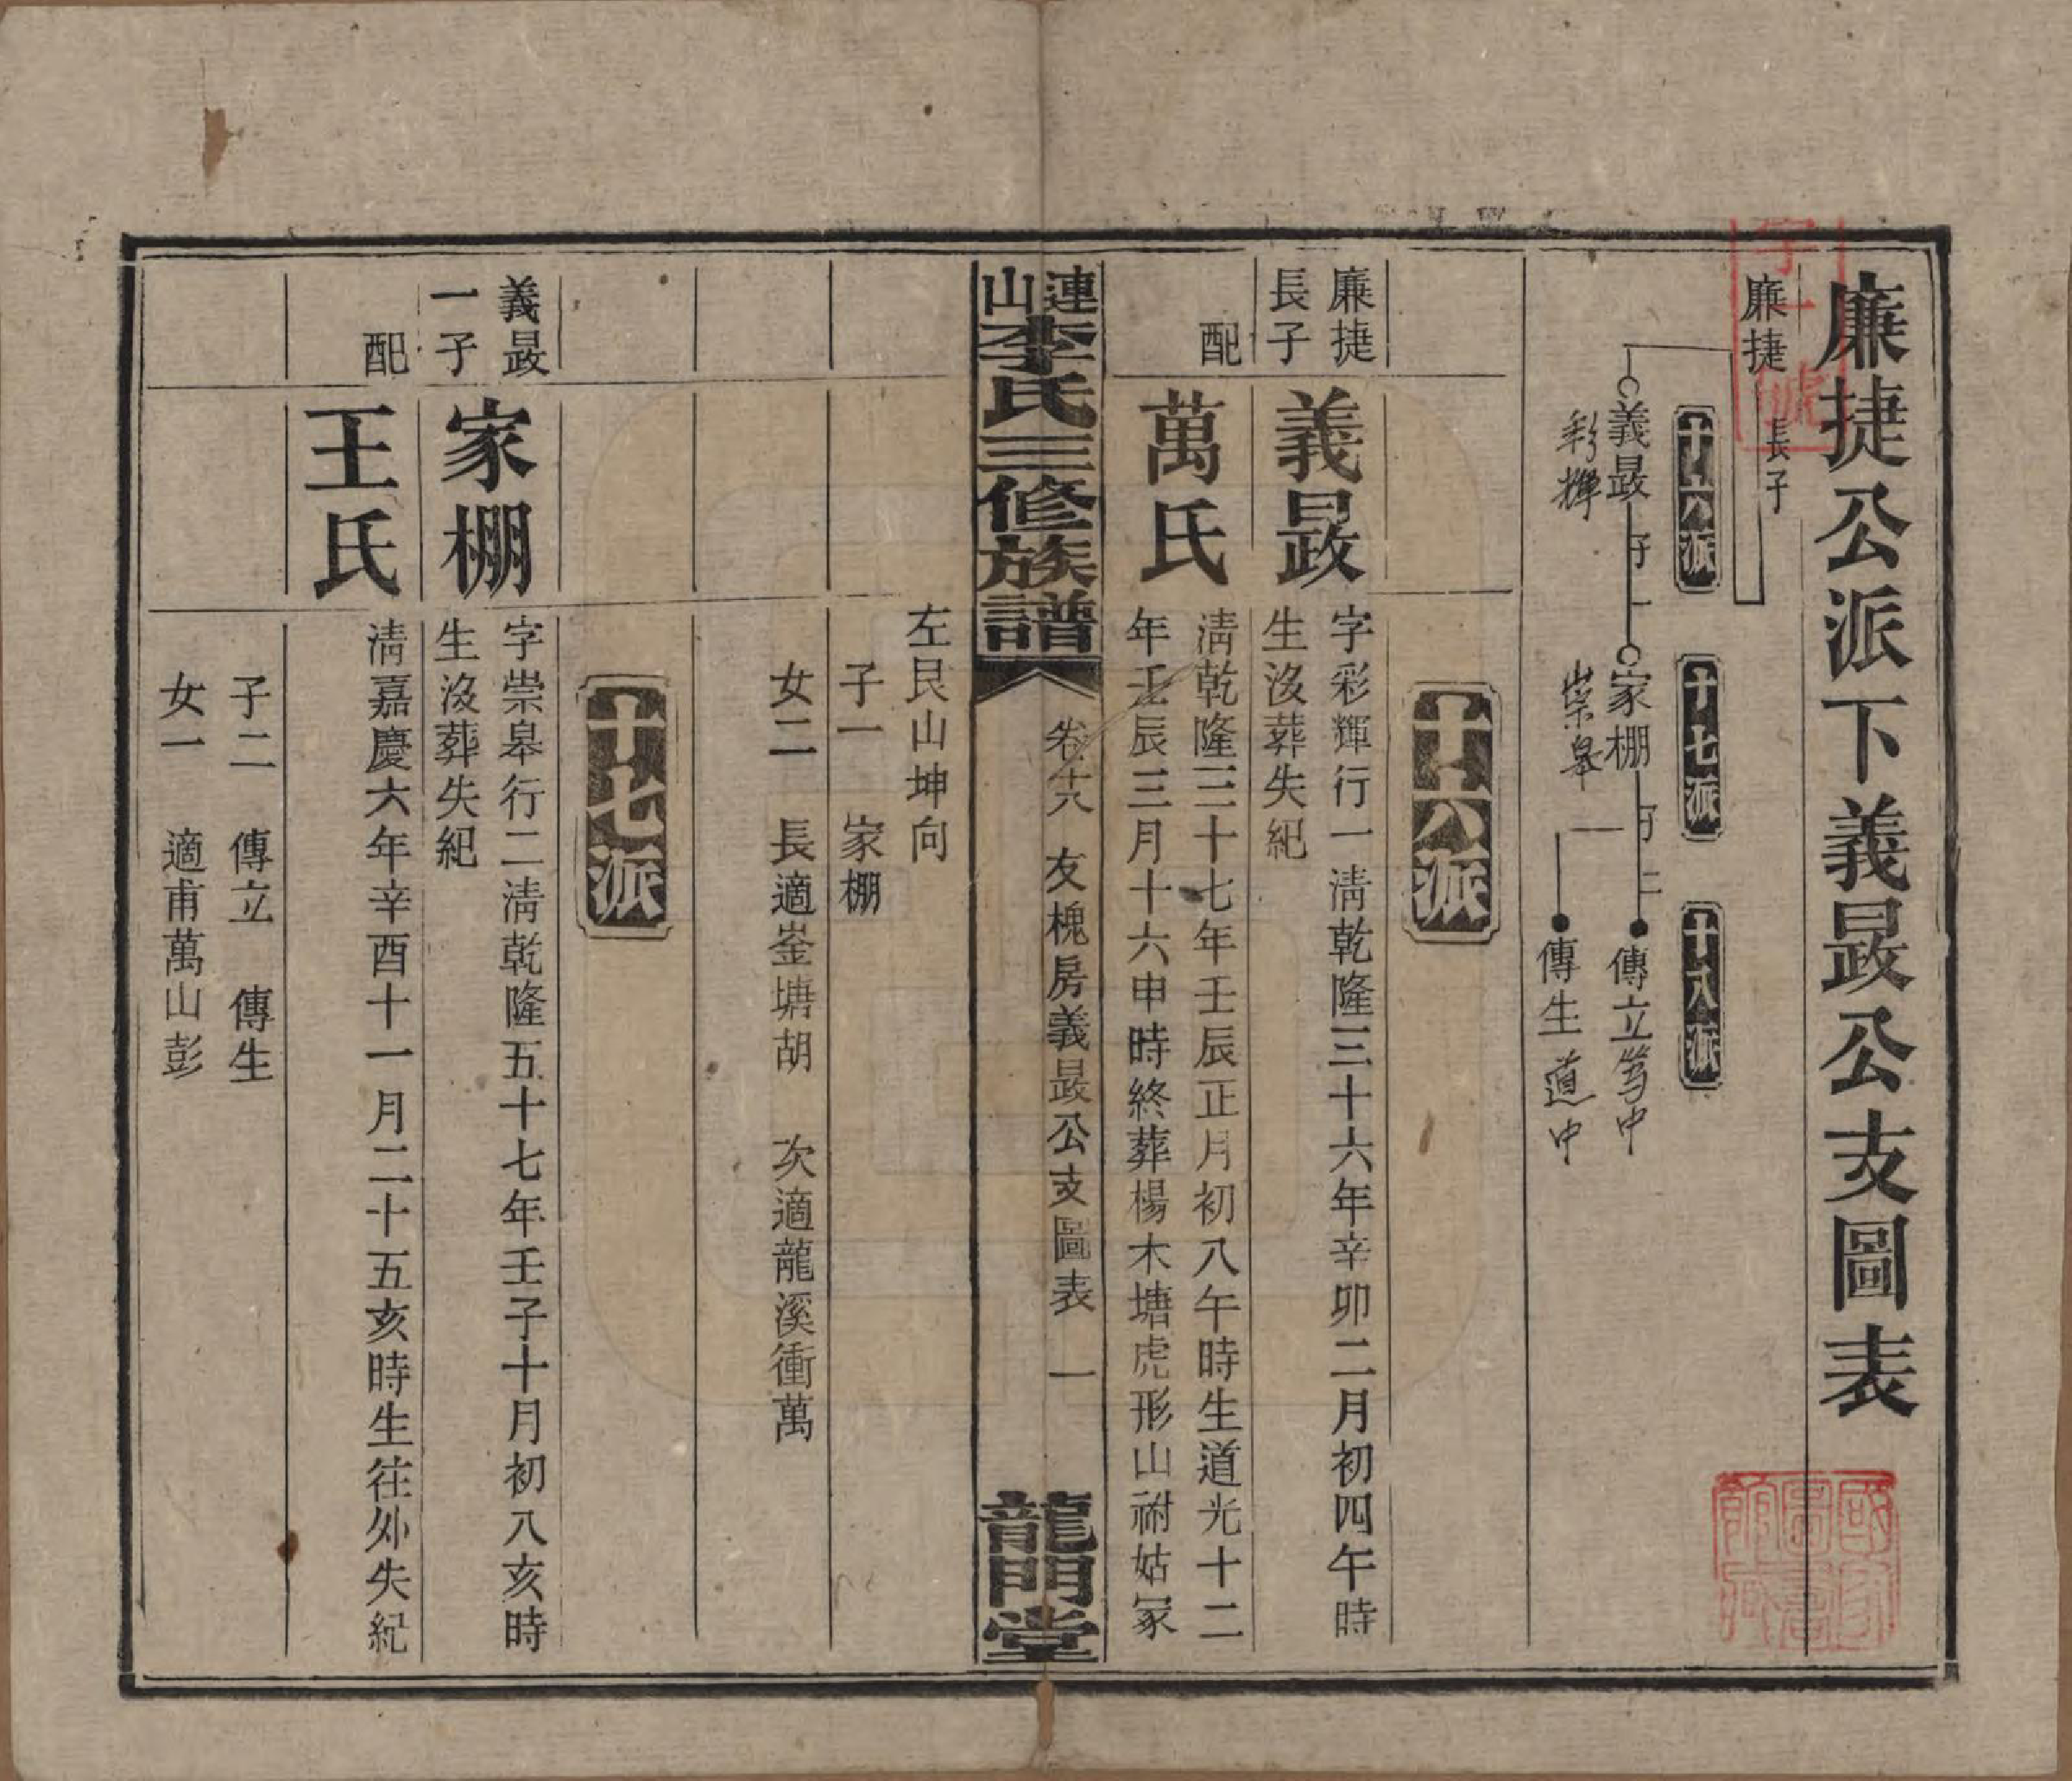 廉捷公派下義晸公支圖表
廉捷
長子
十六派
十七派
十八派
義晸
彩輝
子一
家棚
崇皋
子二
傳立
篤中
傳生
道中
十六派
廉捷
長子
義晸
字彩輝行一淸乾隆三十六年辛卯二月初四午時
生沒葬失紀
配
萬氏
淸乾隆三十七年壬辰正月初八午時生道光十二
年壬辰三月十六申時終葬楊木塘虎形山祔姑冢
連山李氏三修族譜
卷十六 友槐房義晸公支圖表 一
龍門堂
左艮山坤向
子一 家棚
女二 長適崟塘胡 次適龍溪衝萬
十七派
義晸
一子
家棚
字崇皋行二淸乾隆五十七年壬子十月初八亥時
生沒葬失紀
配
王氏
淸嘉慶六年辛酉十一月二十五亥時生往外失紀
子二 傳立 傳生
女一 適甫萬山彭